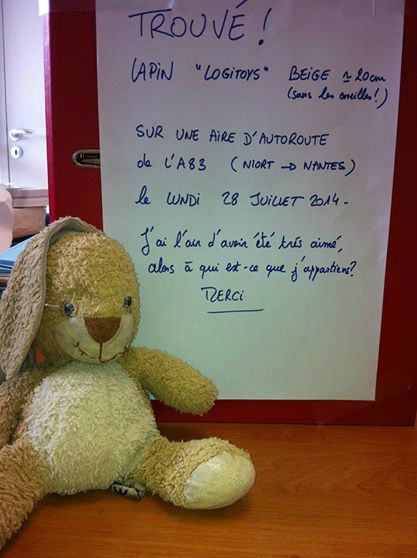 TROUVÉ !
LAPIN "LOGITOYS" BEIGE ≃ 20cm
(sans les oreilles !)
SUR UNE AIRE D'AUTOROUTE
de L'A83 ( NIORT → NANTES)
le LUNDI 28 JUILLET 2014 -
J'ai l'air d'avoir été très aimé,
alors à qui est-ce que j'appartiens ?
MERCI